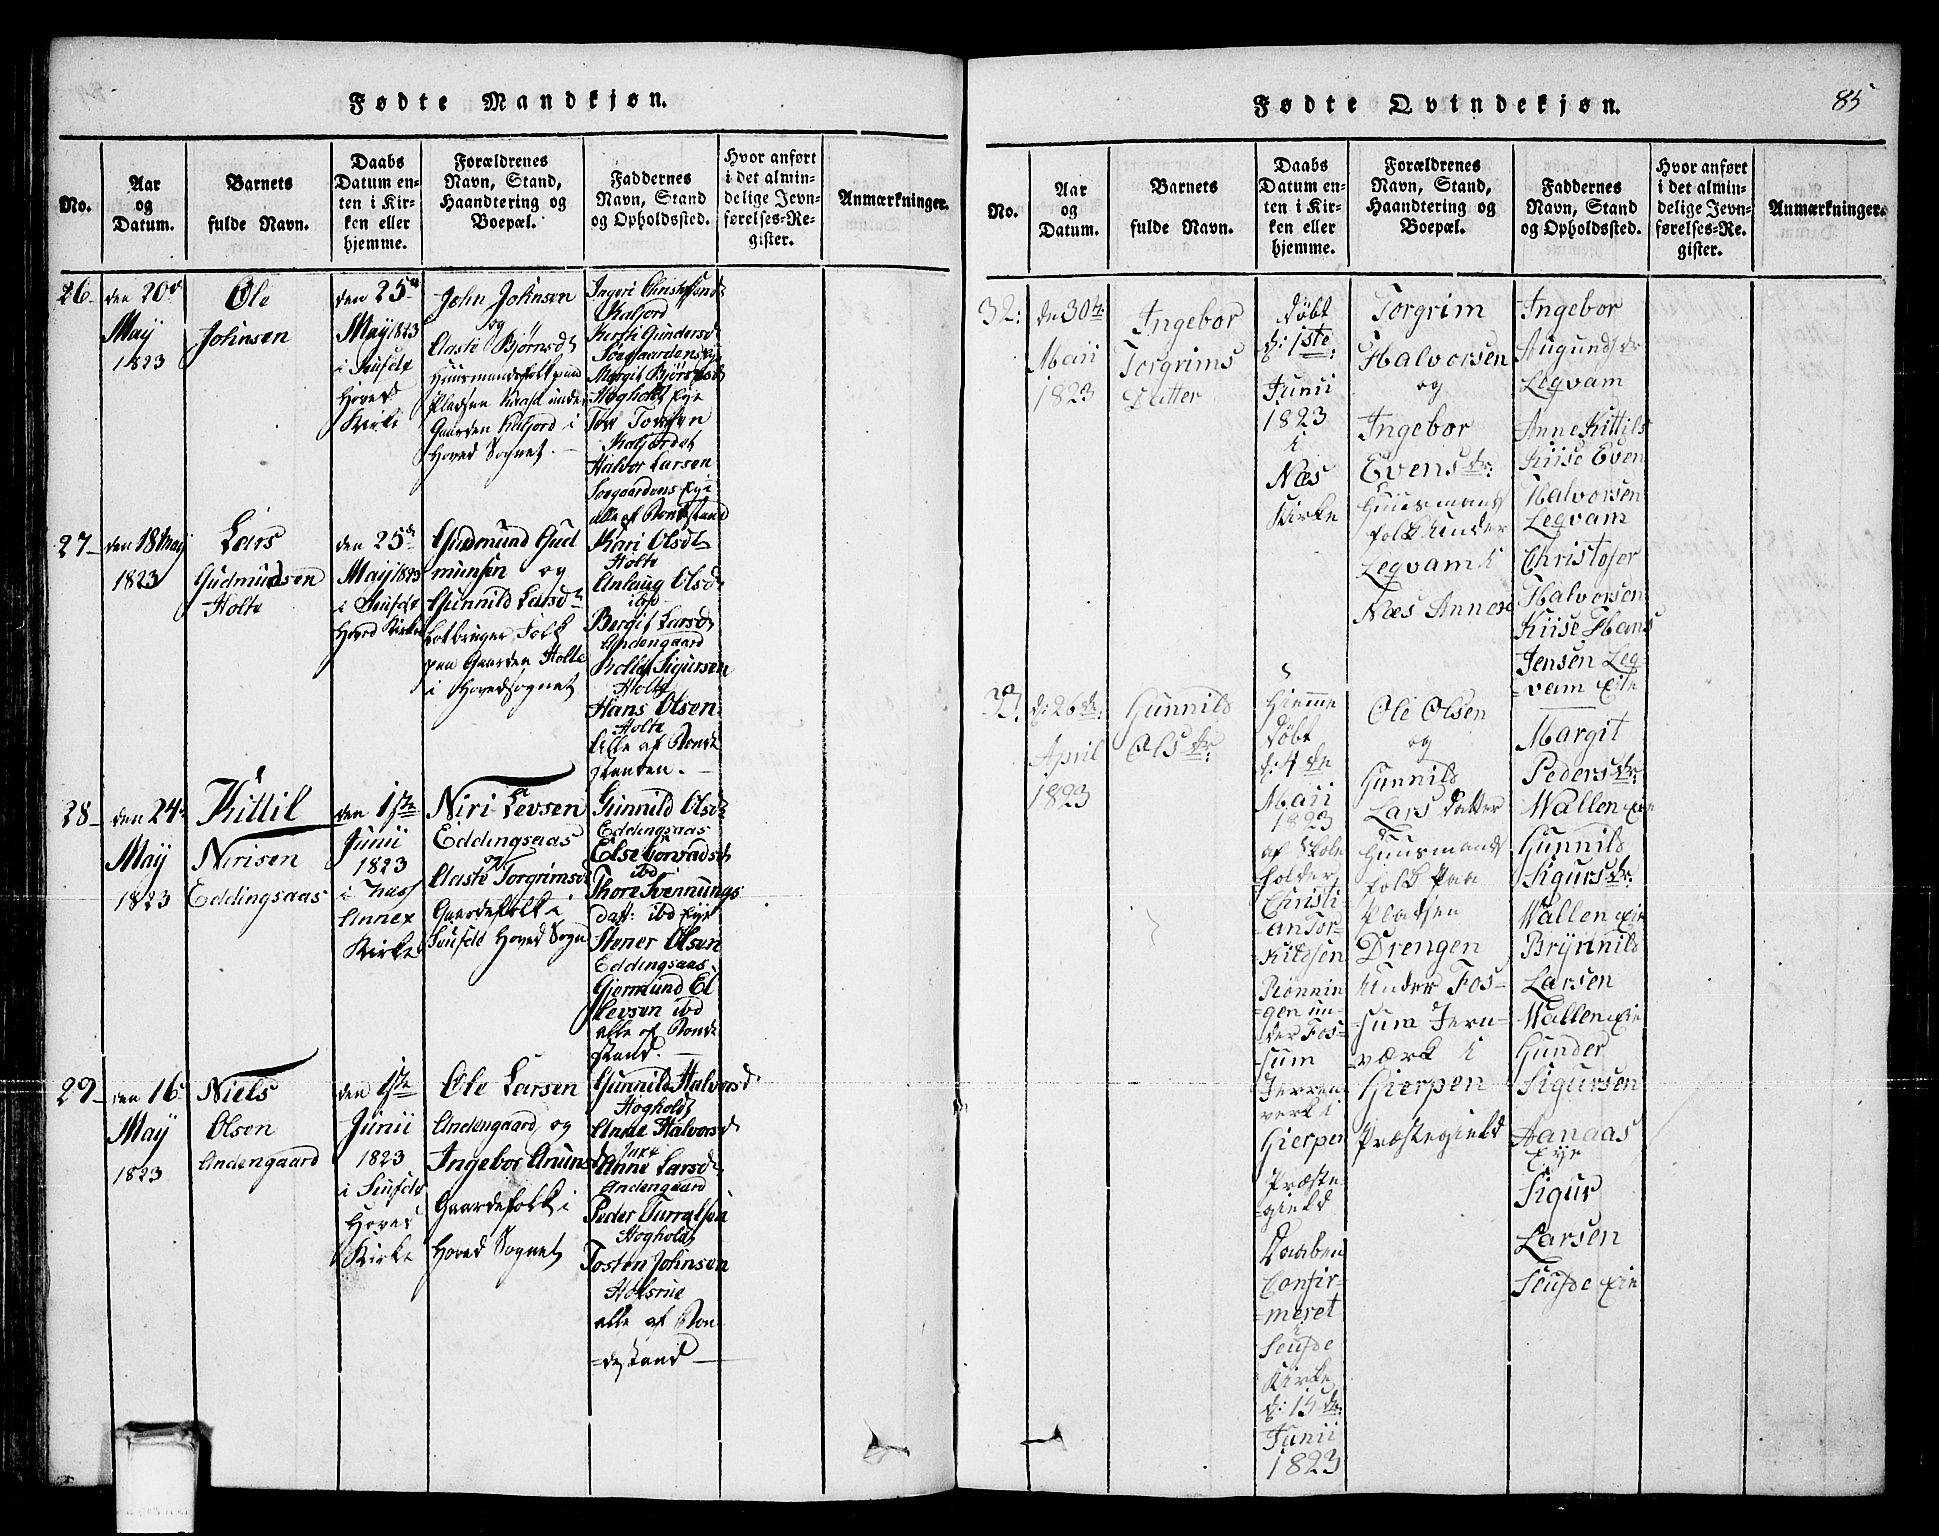 Fødte Mandkjøn.
No.
Aar
og
Datum.
Barnets
fulde Navn.
Daabs
Datum en-
ten i Kir-
ken eller
hjemme.
Forældrenes
Navn, Stand,
Haandtering og
Boepæl.
Faddernes
Navn, Stand
og Opholdssted.
Hvor anført
i det almin-
delige Jevn-
førelses-Re-
gister.
Anmærkninger.
26
den 20de
May
1823
Ole
Johnsen
den 25de
May 1823
i
Hoved
Kirke
John Johnsen
og
Aaste Bjørnsd
Huusmandsfolk paa
Pladsen Kaasa under
Gaarden Kalfjord i
Hoved Sognet.
Ingeri
Kalfjord
Kirsti Gundersd
Margit Bjørnsd
Hogholdt Eye
Halvor Larsen
Eye
alle af Bondestand
27
den 18 May
1823
Lars
Gudmundsen
Holte
den 25de
May 1823
i
Hoved Kirke
Gudmund Gud
munsen og
Gunnild Larsd
Folk
paa Gaarden Holte
i Hovedsognet
Kari Olsd
Holte
Anlaug Olsd
ibd
Bergit Larsd
Andengaard
Sigursen
Holte
Hans Olsen
Holte
alle af Bonde
standen.
28
den 24
May
1823
Kittil
Nirisen
Eddingsaas
den 1ste
Junii
1823
i Næss
Annex
Kirke
Niri Levsen
Eddingsaas
og
Aaste Torgrimsd
Gaardefolk i
Hoved Sogn
Gunnild Olsd
Eddingsaas
Else
ibd
Thore Svennungs
datt: ibd Eye
Stener Olsen
Eddingsaas
Gjermund El
levsen ibd
alle af Bonde
stand.
29
den 16
May
1823
Niels
Olsen
Andengaard
den 1ste
Junii
1823
i
Hoved
Kirke
Ole Larsen
Andengaard og
Ingebor
Gaardefolk i
Hoved Sognet
Gunnild Halvorsd
Hogholdt
Anne Halvorsd
Anne Larsd
Andengaard
Peder
Hogholdt
Tosten Johnsen
alle af Bon
=destand
Fødte Qvindekjøn.
85
No.
Aar
og
Datum.
Barnets
fulde Navn.
Daabs
Datum en-
ten i Kir-
ken eller
hjemme.
Forældrenes
Navn, Stand,
Haandtering og
Boepæl.
Faddernes
Navn, Stand
og Opholdssted.
Hvor anført
i det almin-
delige Jevn-
førelses-Re-
gister.
Anmærkninger.
32:
den 30te
Maii
1823
Ingebor
Torgrims
Datter
Døbt
d: 1ste
Junii
1823
i
Næs
Kirke
Torgrim
Halvorsen
og
Ingebor
Evensdr:
Huusmands
folk under
Legvam i
Næs Annex
Ingebor
Augundsdr
Legvam
Anne Kittils
Kiise Even
Halvorsen
Legvam
Christofer
Halvorsen
Kiise Hans
Jensen Leg
=vam Eie
d: 26de:
April
1823
Gunnild
Olsdr:
Hiemme
Døbt
d: 4de
Maii
1823
af Skole
holder
Christi-
=an Tor-
=kildsen
Rønnin
=gen un-
=der Fos-
=sum
Jerren
verk i
Gierpen
Præste-
=gield
Daaben
Confir-
=meret
i
Seufde
Kirke
d: 15de:
Junii
1823
Ole Olsen
og
Gunnild
Lars Datter
Huusmands
folk paa
Pladsen
Drengen
under Fos-
=sum Jern-
=værk i
Gierpen
Præstegield
Margit
Pedersdr:
Wallen Eie
Gunnild
Sigursdr:
Wallen Eie
Brynnild
Larsen
Wallen Eie
Gunder
Sigursen
Aanaas
Eye
Sigur
Larsen
Seufde Eie